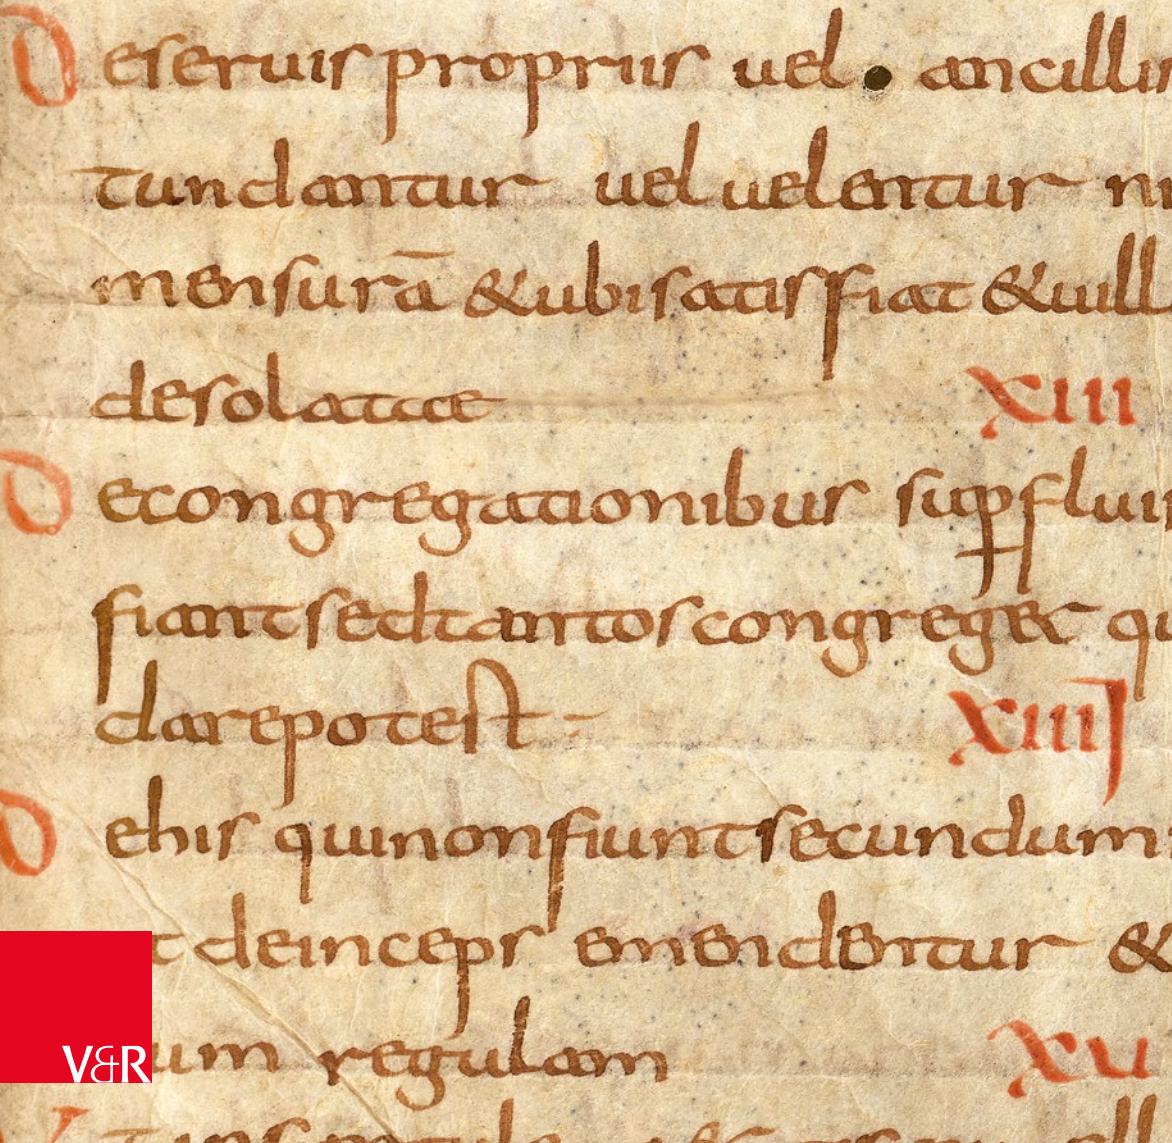 Deseruis propriis uel ancillis
tundantur uel uelentur
mensurā & ubi satis fiat & uill
desolatae
XIII
De congregationibus supfluis
fiant sed tantos congreget
dare potest
XIIII
De his qui non fiunt secundum
t deinceps emendentur &
um regulam
XV
V&R